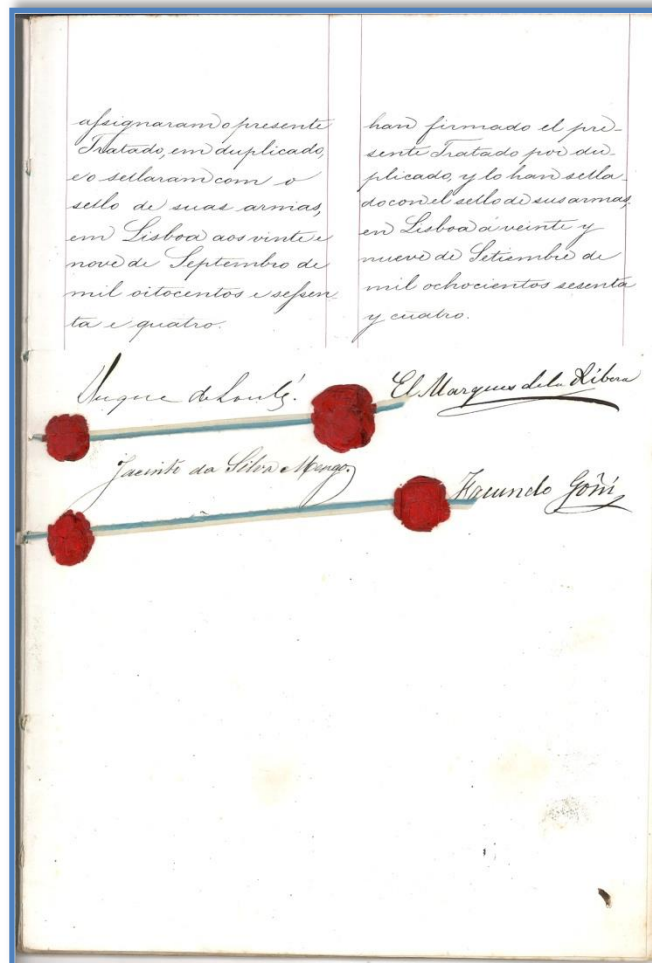 assignaram o presente
Tratado, em duplicado,
e o sellaram com o
sello de suas armas,
em Lisboa aos vinte e
nove de Septembro de
mil oitocentos e sessen
ta e quatro.
han firmado el pre-
sente Tratado por du-
plicado, y lo han sella
do con el sello de sus armas,
en Lisboa á veinte y
nueve de Setiembre de
mil ochocientos sesenta
y cuatro.
Duque de Loulé.
El Marques de la Ribera
Jacinto da Silva Mengo.
Facundo Goñi